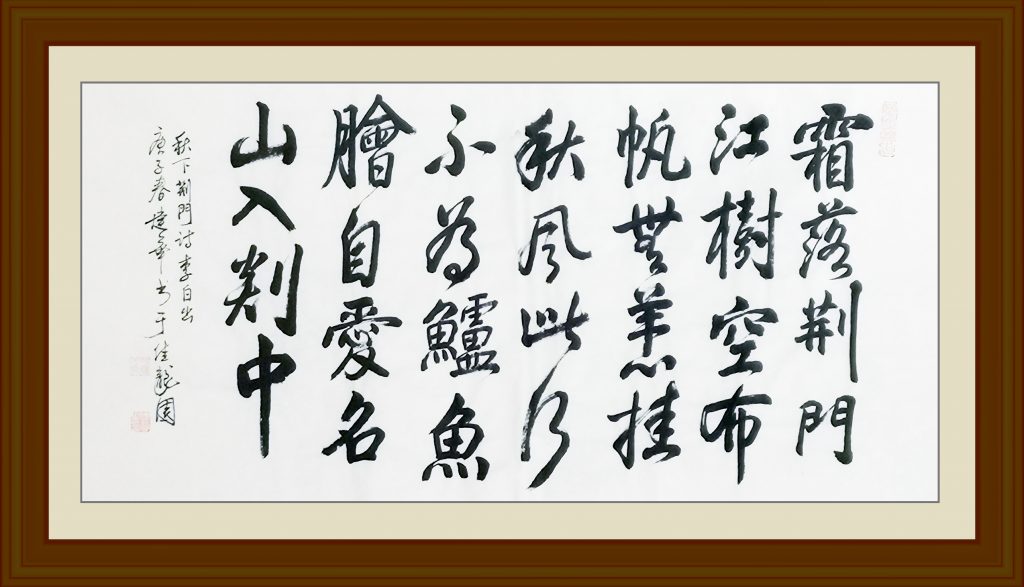 霜落荆門
江樹空布
帆無恙挂
秋風此行
不為鱸魚
膾自愛名
山入剡中
秋下荆門诗李白
庚子春建華书于佳龍園